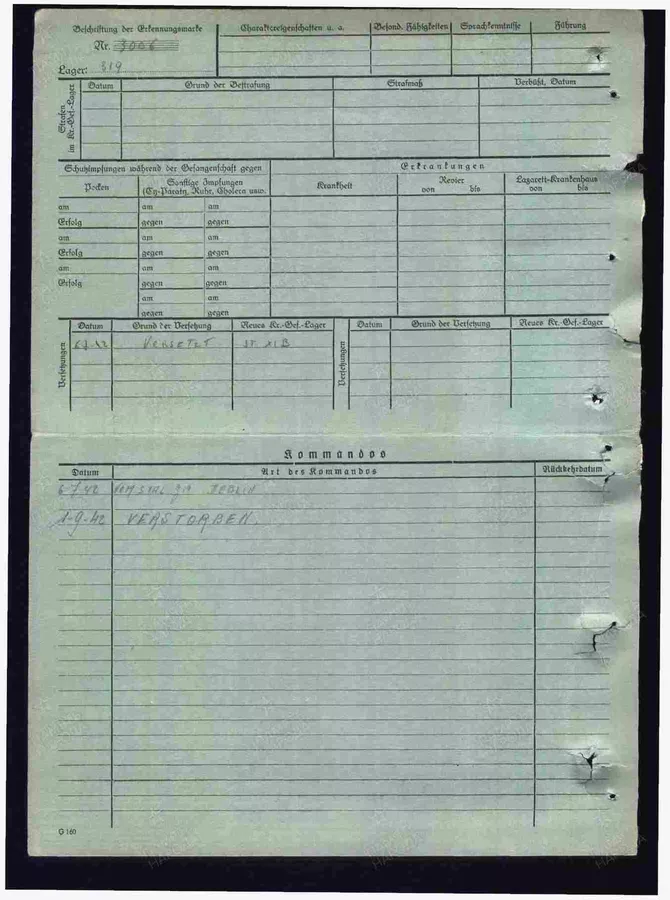 Beschriftung der Erkennungsmarke
Nr. 3006
Lager: 319
Charaktereigenschaften u. a.
Besond. Fähigkeiten
Sprachkenntnisse
Führung
Strafen im Kr.-Gef.-Lager
Datum
Grund der Bestrafung
Strafmaß
Verbüßt, Datum
Schutzimpfungen während der Gefangenschaft gegen
Erkrankungen
Pocken
Sonstige Impfungen
(Ty.-Paraty., Ruhr, Cholera usw.
Krankheit
Revier
von bis
Lazarett-Krankenhaus
von bis
am am am
Erfolg gegen gegen
am am am
Erfolg gegen gegen
am am am
Erfolg gegen gegen
am am
gegen gegen
Versetzungen
Datum Grund der Versetzung Neues Kr.-Gef.-Lager
VERSETZT
Versetzungen
Datum Grund der Versetzung Neues Kr.-Gef.-Lager
Kommandos
Datum Art des Kommandos Rückkehrdatum
BERLIN
1-9-42 VERSTORBEN.
G 160